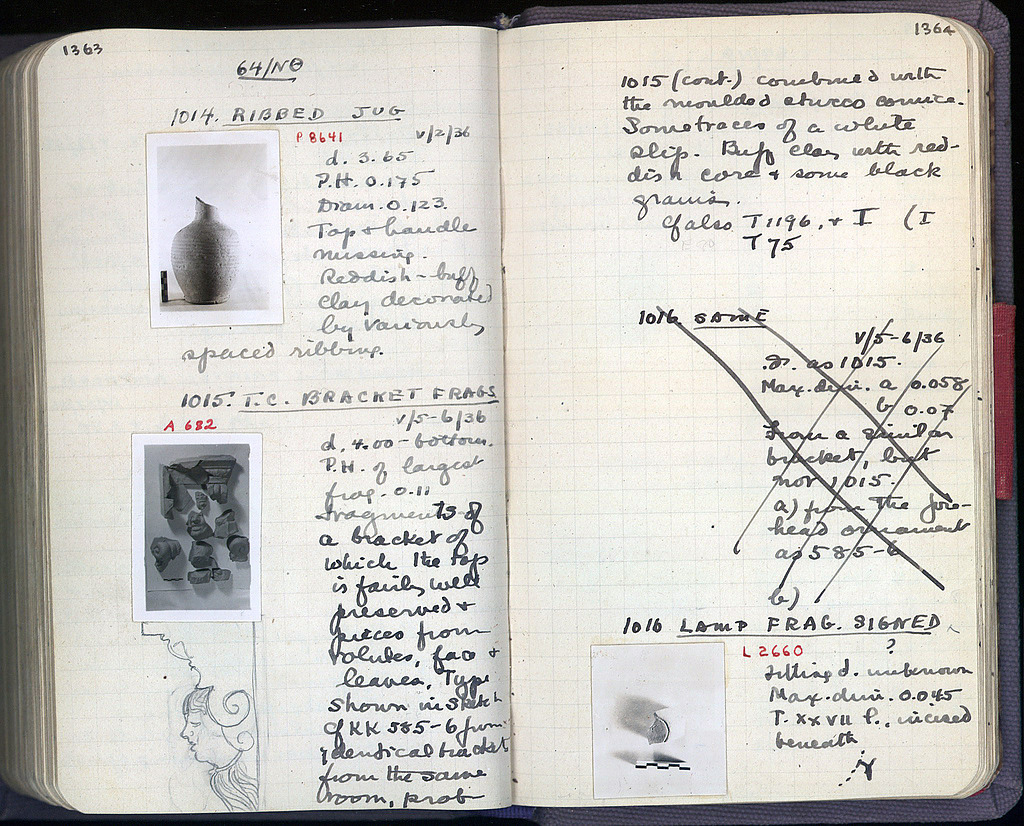 1363
64/ΝΘ
1014. RIBBED JUG
P 8641
V/2/36
d. 3.65
P.H. 0.175
Diam. 0.123.
Top + handle
missing.
Reddish-buff
clay decorated
by variously
spaced ribbing.
1015. T.C. BRACKET FRAGS
A 682
V/5-6/36
d. 4.00 - bottom.
P.H. of largest
frag. 0.11
Fragments of
a bracket of
which the top
is fairly well
preserved +
pieces from
volutes, face +
leaves. Type
shown in sketch
of KK 585-6 from
identical bracket
from the same
room, prob
1364
1015 (cont.) combined with
the moulded stucco cornice.
Some traces of a white
slip. Buff clay with red-
dish core + some black
grains.
Cf also T 1196, + I (I
T 75
1016 SAME
V/5-6/36
d. as 1015.
Max. dim. a 0.058
b 0.07
From a similar
bracket, but
not 1015.
a) from the fore-
head ornament
as 585-6
b)
1016 LAMP FRAG. SIGNED
?
L 2660
Filling d. unknown
Max. dim. 0.045
T. XXVII P., incised
beneath